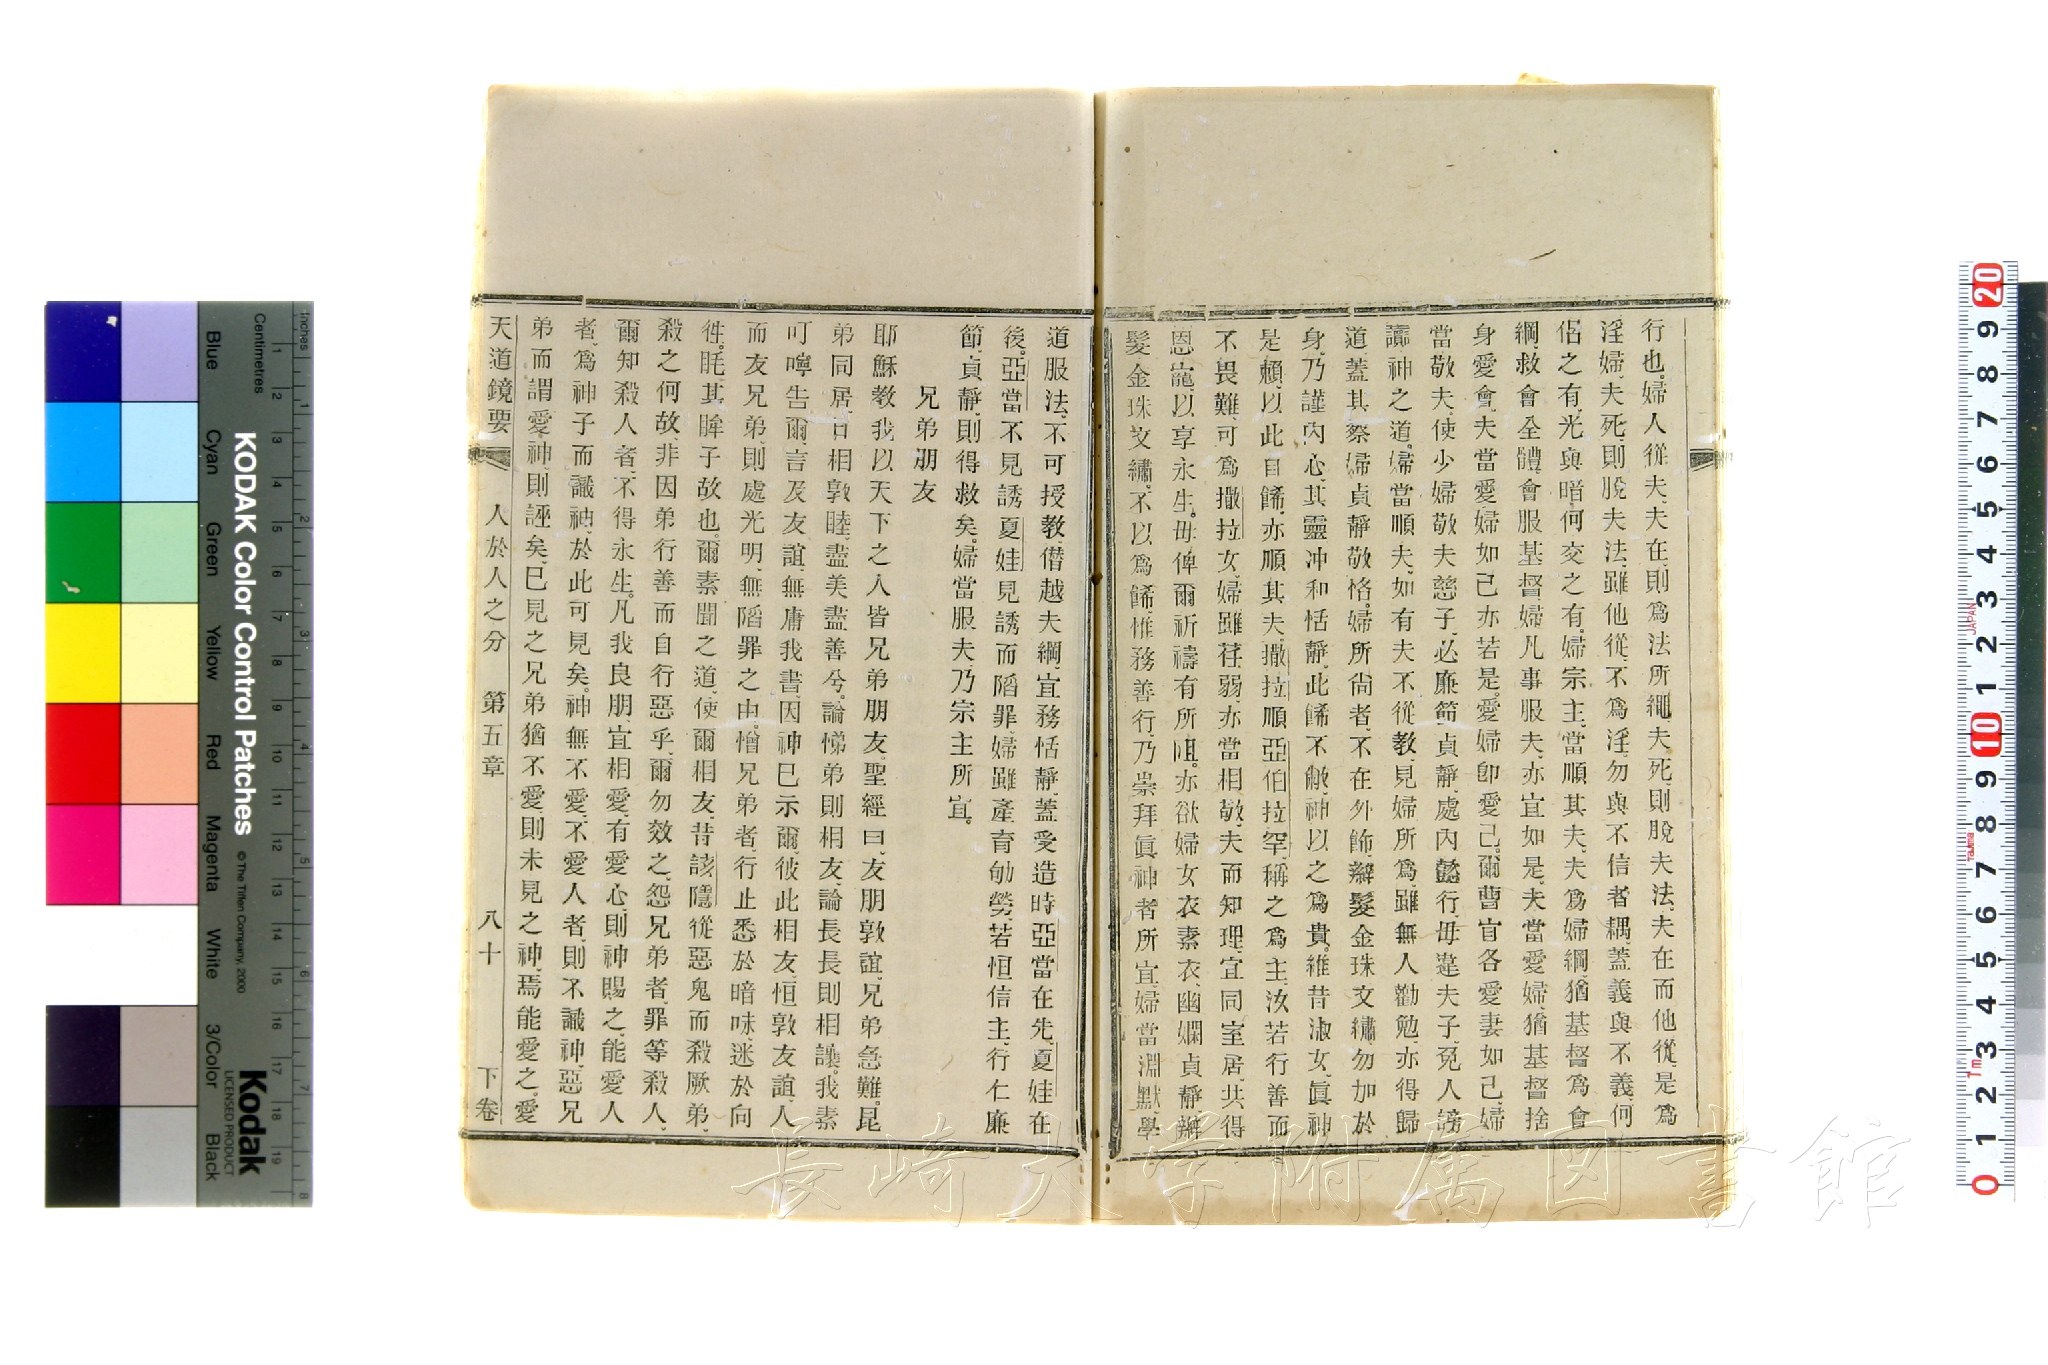 行也。婦人從夫、夫在、則爲法所繩、夫死、則脫夫法、夫在而他從、是爲
淫婦、夫死則脫夫法、雖他從、不爲淫、勿與不信者耦、蓋義與不義何
侶之有、光與暗、何交之有、婦宗主、當順其夫、夫爲婦綱、猶基督爲會
綱、救會全體、會服基督、婦凡事服夫、亦宜如是、夫當愛婦、猶基督捨
身愛會、夫當愛婦如己、亦若是、愛婦卽愛己、爾曹宜各愛妻如己、婦
當敬夫、使少婦敬夫慈子、必廉節貞靜、處內懿行、毋違夫子、免人謗
讟神之道。婦當順夫、如有夫不從教、見婦所爲、雖無人勸勉、亦得歸
道、蓋其察婦貞靜敬恪。婦所尙者、不在外飾、辮髮金珠文繡勿加於
身、乃謹內心、其靈冲和恬靜、此餙不敝、神以之爲貴。維昔淑女、眞神
是賴、以此自餙、亦順其夫、撒拉順亞伯拉罕、稱之爲主、汝若行善而
不畏難、可爲撒拉女、婦雖荏弱、亦當相敬、夫而知理、宜同室居、共得
恩寵、以享永生。毋俾爾祈禱有所阻。亦欲婦女衣素衣、幽嫻貞靜、辮
髮金珠文繡、不以爲餙、惟務善行、乃崇拜眞神者所宜、婦當淵默、學
道服法、不可授教、僭越夫綱、宜務恬靜、蓋受造時、亞當在先、夏娃在
後。亞當不見誘、夏娃見誘而陷罪、婦雖產育劬勞、若恒信主、行仁廉
節、貞靜、則得救矣。婦當服夫、乃宗主所宜。
兄弟朋友
耶穌教我以天下之人皆兄弟朋友。聖經曰、友朋敦誼、兄弟急難。昆
弟同居、日相敦睦、盡美盡善兮。論悌弟則相友、論長長則相讓。我素
叮嚀告爾、言及友誼、無庸我書、因神已示爾、彼此相友、恒敦友誼、人
而友兄弟、則處光明、無陷罪之由。憎兄弟者、行止悉於暗昧、迷於向
徃。眊其眸子故也。爾素聞之道、使爾相友、昔該隱從惡鬼而殺厥弟、
殺之何故、非因弟行善而自行惡乎、爾勿效之、怨兄弟者、罪等殺人、
爾知殺人者、不得永生。凡我良朋、宜相愛、有愛心則神賜之、能愛人
者、爲神子而識神、於此可見矣。神無不愛、不愛人者、則不識神、惡兄
弟而謂愛神、則誣矣、已見之兄弟猶不愛、則未見之神、焉能愛之。愛
天道鏡要 人於人之分 第五章 八十 下卷
長崎大学附属図書館
KODAK Color Control Patches
© The Tiffen Company, 2000
Kodak
LICENSED PRODUCT
Inches
Centimetres
Blue Cyan Green Yellow Red Magenta White 3/Color Black